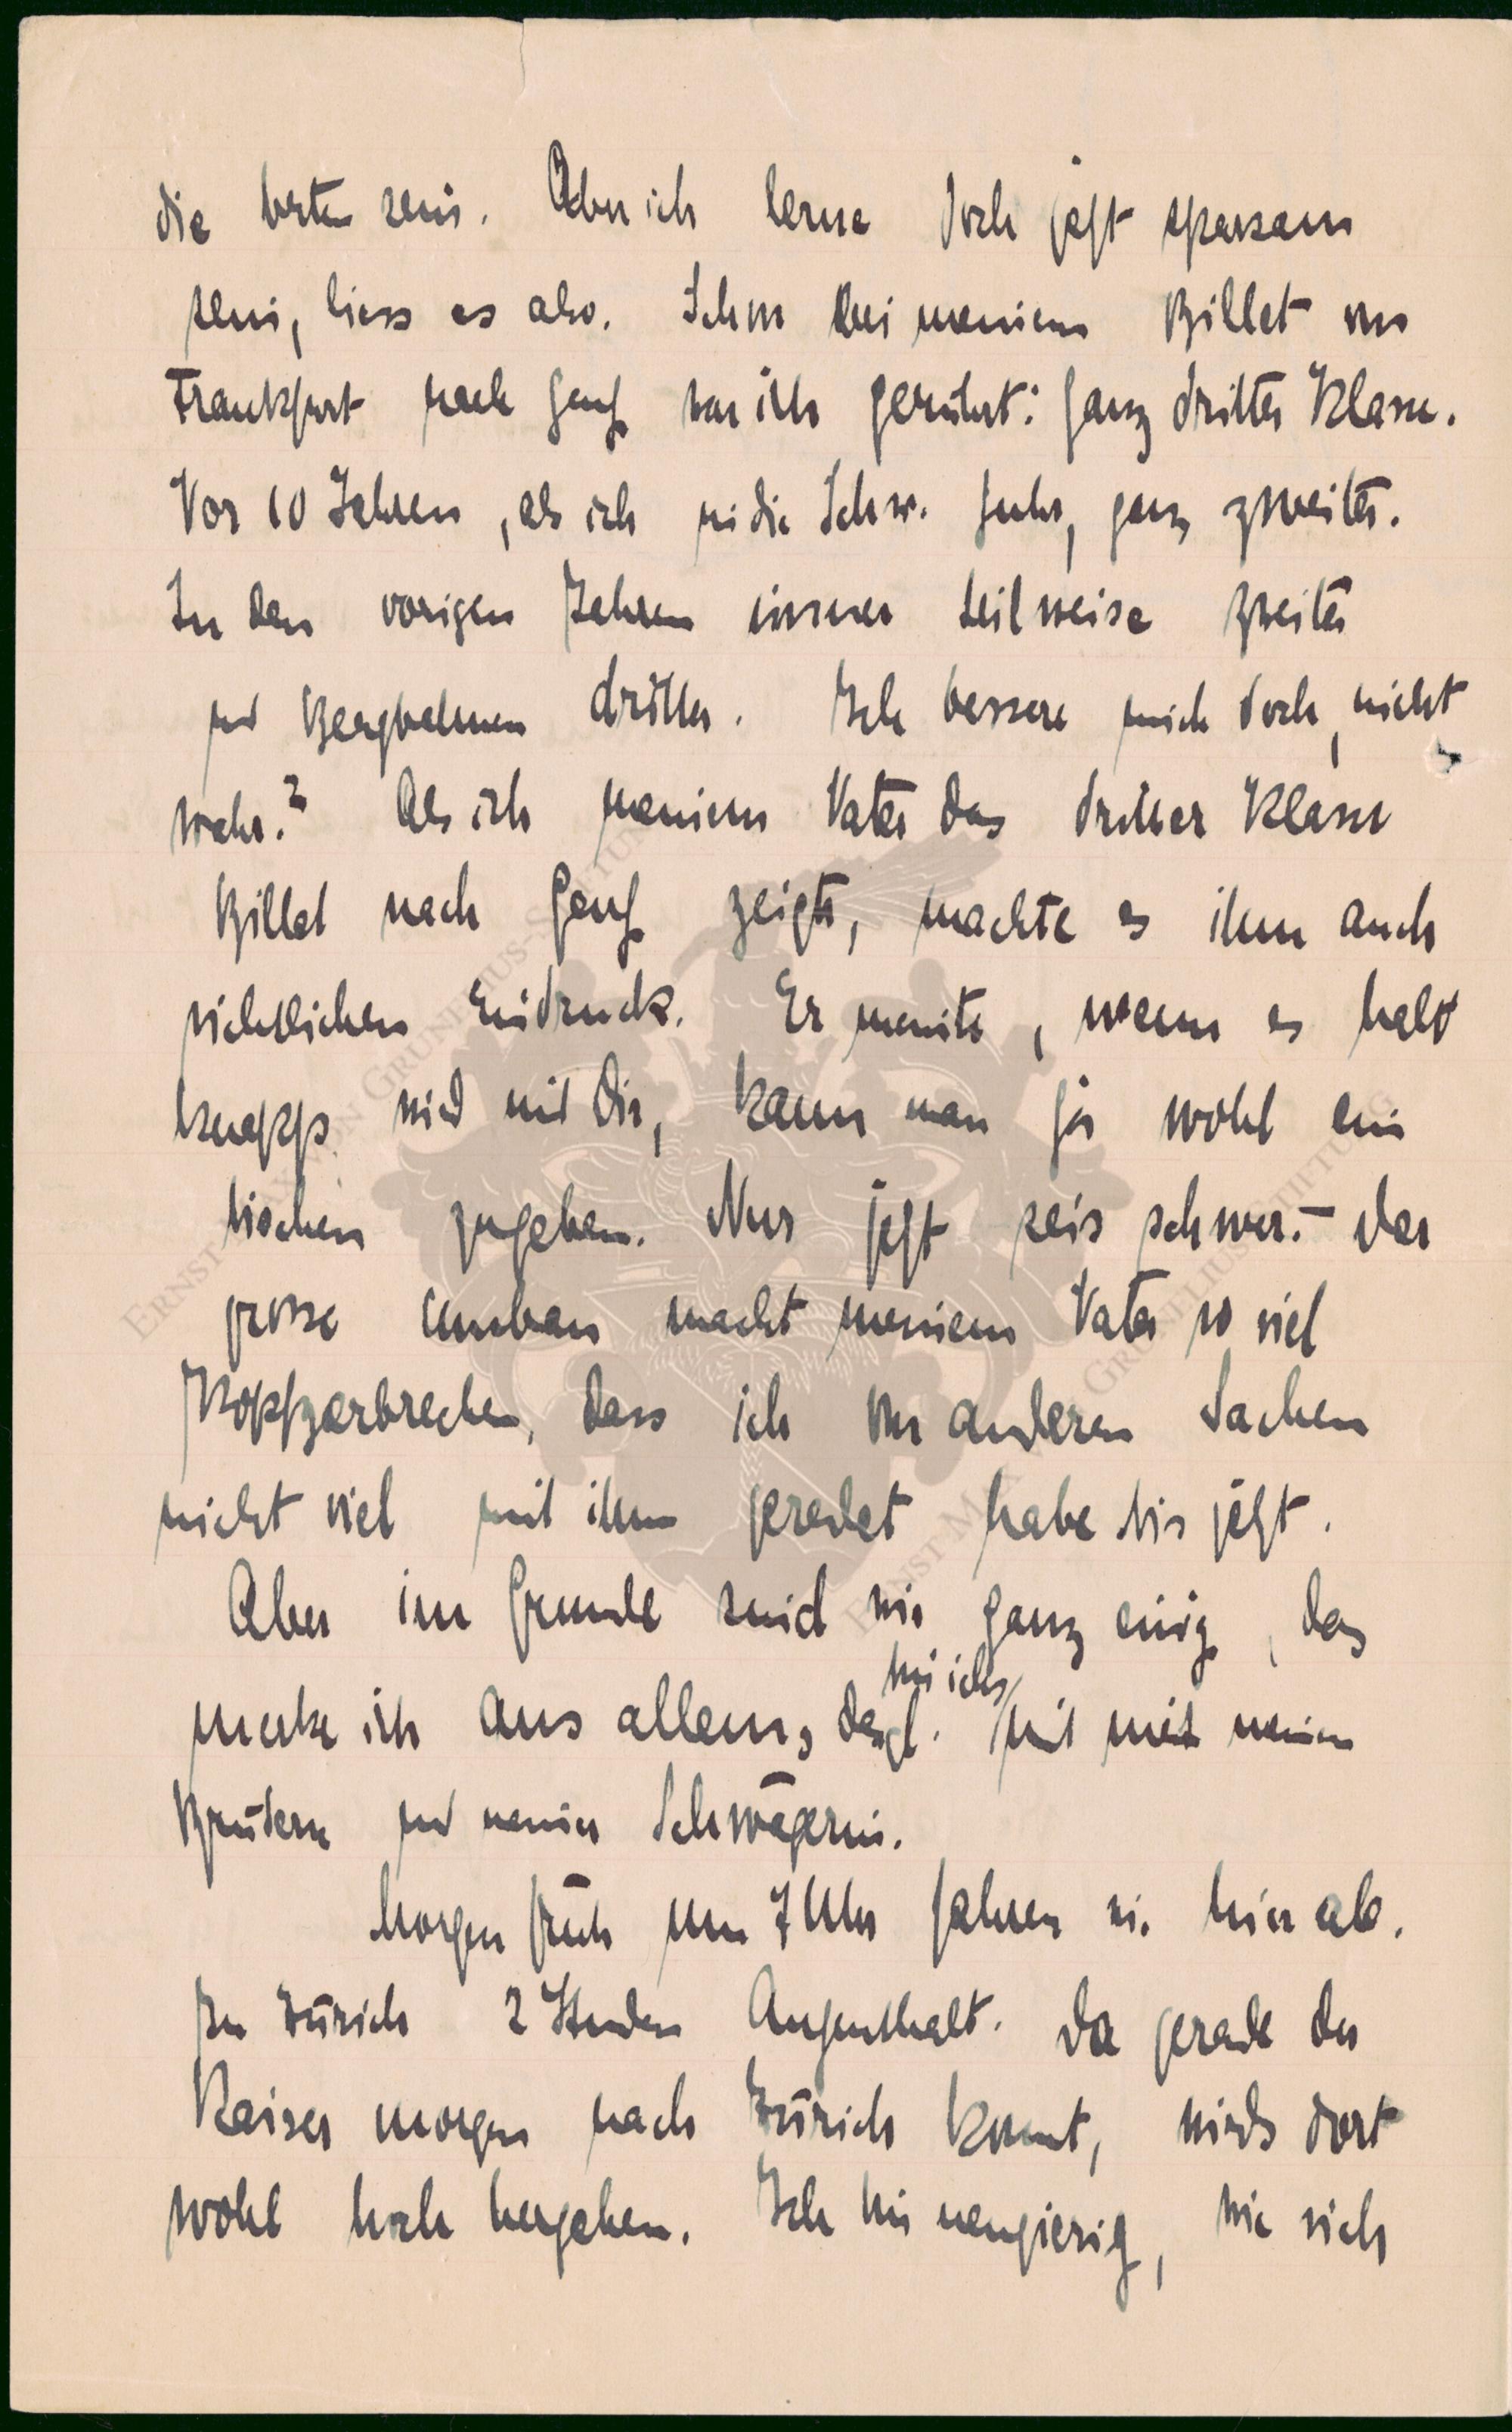 die besten sein. Aber ich lerne doch jetzt sparsam
sein, liess es also. Schon bei meinem Billet von
Frankfurt nach Genf war ich gerührt: ganz dritter Klasse.
Vor 10 Jahren, als ich in die Schw. fuhr, ganz zweiter.
In den vorigen Jahren immer teilweise zweiter
und Bergbahnen dritter. Ich bessere mich doch, nicht
wahr.? Als ich meinem Vater das dritter Klasse
Billet nach Genf zeigte, machte es ihm auch
sichtlichen Eindruck. Er meinte, wenn es halt
knapp wird mit Dir, kann man ja wohl ein
bischen zugeben. Nur jetzt seis schwer. – Der
grosse Umbau macht meinem Vater so viel
Kopfzerbrechen, dass ich von anderen Sachen
nicht viel mit ihm geredet habe bis jetzt.
Aber im Grunde sind wir ganz einig, das
merke ich aus allem, desgl. bin ichs mit meinen
Brüdern und meiner Schwägerin.
Morgen früh um 7 Uhr fahren wir hier ab.
In Zürich 2 Stunden Aufenthalt. Da gerade der
Kaiser morgen nach Zürich kommt, wirds dort
wohl hoch hergehen. Ich bin neugierig, wie sich
ERNST MAX VON GRUNELIUS-STIFTUNG
ERNST MAX VON GRUNELIUS-STIFTUNG